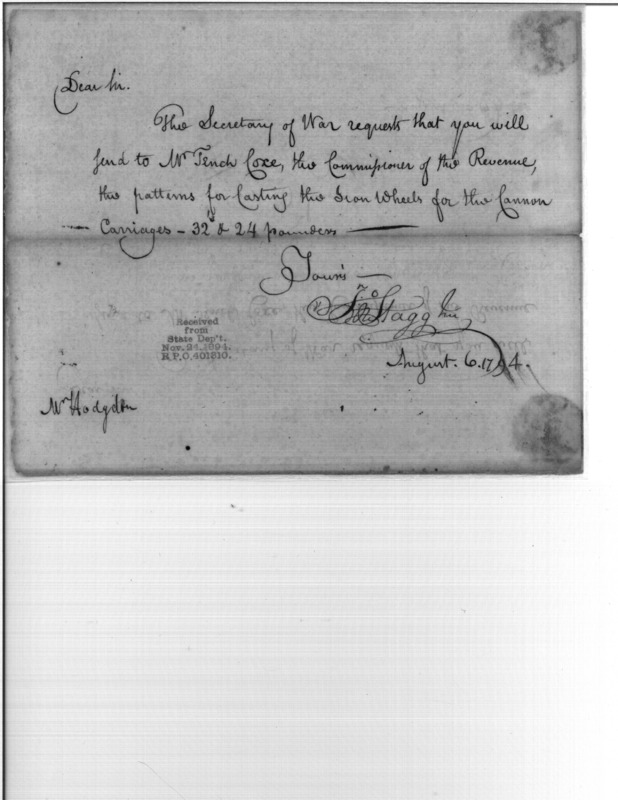 Dear Sir.
The Secretary of War requests that you will
send to Mr Tench Coxe, the Commissioner of the Revenue,
the patterns for Casting the Iron Wheels for the Cannon
Carriages - 32 & 24 pounders
Yours
Jno Stagg Jnr
Received
from
State Dep't.
Nov. 24, 1894.
R.P.O. 401810.
August. 6. 1794.
Mr Hodgdon